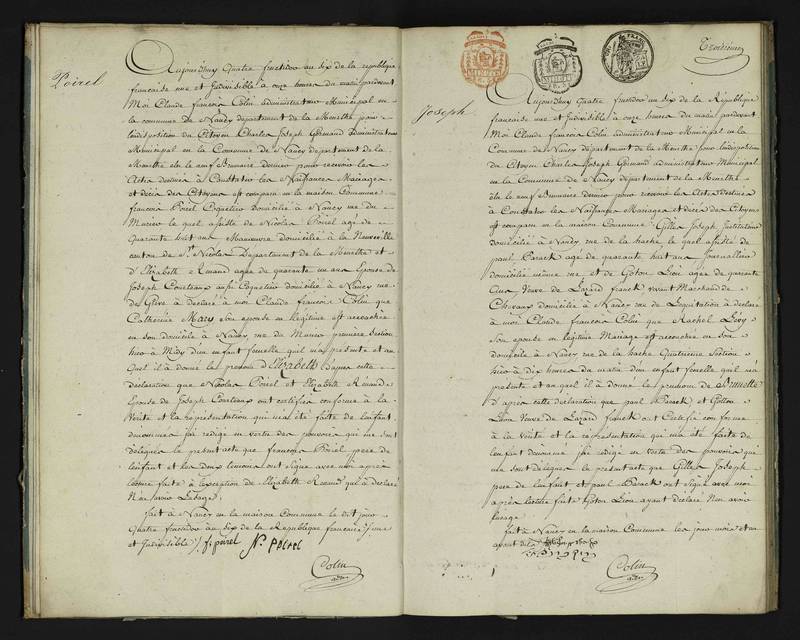 Poirel
Aujourd'huy Quatre fructidor an six de la republique
francaise une et Indivisible à onze heures du matin pardevant
Moi Claude francois Colin administrateur Municipal en
la commune de Nancy departement de la Meurthe pour
lindisposition du Citoyen Charles Joseph administrateur
Municipal en la Commune de Nancy département de la
Meurthe élu le neuf Brumaire dernier pour recevoir les
Actes destinés à Constater les Naissances Mariages
et décès des Citoyens est comparu en la maison Commune
francois Poirel Coquetier domicilié à Nancy rue du
Murier le quel assisté de Nicolas Poirel agé de
Quarante huit ans Manœuvre domicilié à la Neuveville
canton de St Nicolas Departement de la Meurthe et
d'Elizabeth agée de quarante un ans Epouse de
Joseph aussi Coquetier domiciliée à Nancy rue
de Grève à déclaré à moi Claude francois Colin que
Catherine Mary son epouse en legitime est accouchée
en son domicile à Nancy rue du Murier premiere Section
hier à Midy d'un enfant femelle quil m'a présenté et au
Quel il à donné le prenom d'Elizabeth D'apres cette
declaration que Nicolas Poirel et Elizabeth
Epouse de Joseph ont certifiée conforme à la
Verité et la representation qui m'a été faite de l'enfant
denommé jai rédigé en vertu des pouvoirs qui me sont
délegués le présent acte que francois Poirel pere de
l'enfant et les deux temoins ont signé avec moi après
lecture faite à l'exception de Elizabeth qui a declaré
N'en savoir L'usage.
fait à Nancy en la maison Commune le dit jour
Quatre fructidor an six de la Republique francaise une
et Indivisible /. f poirel N. Poirel
Colin
adm
Troisieme
Joseph
Aujourd'huy Quatre fructidor an six de la République
francaise une et Indivisible à onze heures du matin pardevant
Moi Claude francois Colin administrateur Municipal en la
Commune de Nancy département de la Meurthe pour lindisposition
du Citoyen Charles Joseph administrateur Municipal
en la Commune de Nancy département de la Meurthe
élu le neuf Brumaire dernier pour recevoir les Actes destinés
à Constater les Naissances Mariages et décès des Citoyens
est comparu en la maison Commune Gilles Joseph Instituteur
domicilié à Nancy rue de la hache le quel assisté de
paul agé de quarante huit ans Journallier
domicilié même rue et de Goton Lion agée de quarante
ans Veuve de Lazard franck vivant Marchand de
Chevaux domiciliée à Nancy rue de L'equitation à declaré
à moi Claude francois Colin que Rachel Lévy
Son epouse en legitime Mariage est accouchée en son
domicile à Nancy rue de la hache Quatrieme Section
hier à dix heures du matin d'un enfant femelle quil m'a
présenté et au quel il à donné le prenom de Brunette
d'après cette déclaration que paul et Goton
Lion Veuve de Lazard franck ont Certifié conforme
à la verité et la representation qui m'a été faite de
l'enfant denommé jai rédigé en vertu des pouvoirs qui
me sont délegués le présent acte que Gilles Joseph
pere de l'enfant et paul ont signé avec moi
après lecture faite Goton Lion ayant declaré N'en avoir
L'usage
fait à Nancy en la maison Commune les jour mois et an
avant dits
Colin
adm